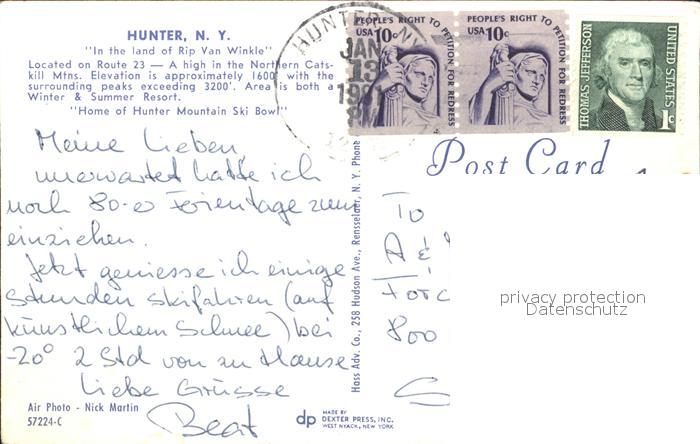 HUNTER, N. Y.
"In the land of Rip Van Winkle"
Located on Route 23 — A high in the Northern Cats-
kill Mtns. Elevation is approximately 1600' with the
surrounding peaks exceeding 3200'. Area is both a
Winter & Summer Resort.
"Home of Hunter Mountain Ski Bowl"
Meine Lieben
unerwartet hatte ich
noch 80-er Ferientage zum
einziehen.
Jetzt geniesse ich einige
Stunden skifahren (auf
künstlichem Schnee) bei
-20° 2 Std von zu Hause
Liebe Grüsse
Beat
Air Photo - Nick Martin
57224-C
dp MADE BY
DEXTER PRESS, INC.
WEST NYACK, NEW YORK
Hass Adv. Co., 258 Hudson Ave., Rensselaer, N. Y. Phone
HUNTER, NY
JAN
13
PM
PEOPLE'S RIGHT TO PETITION FOR REDRESS
USA 10c
PEOPLE'S RIGHT TO PETITION FOR REDRESS
USA 10c
THOMAS JEFFERSON
UNITED STATES
1c
Post Card
To
A &
800
privacy protection
Datenschutz